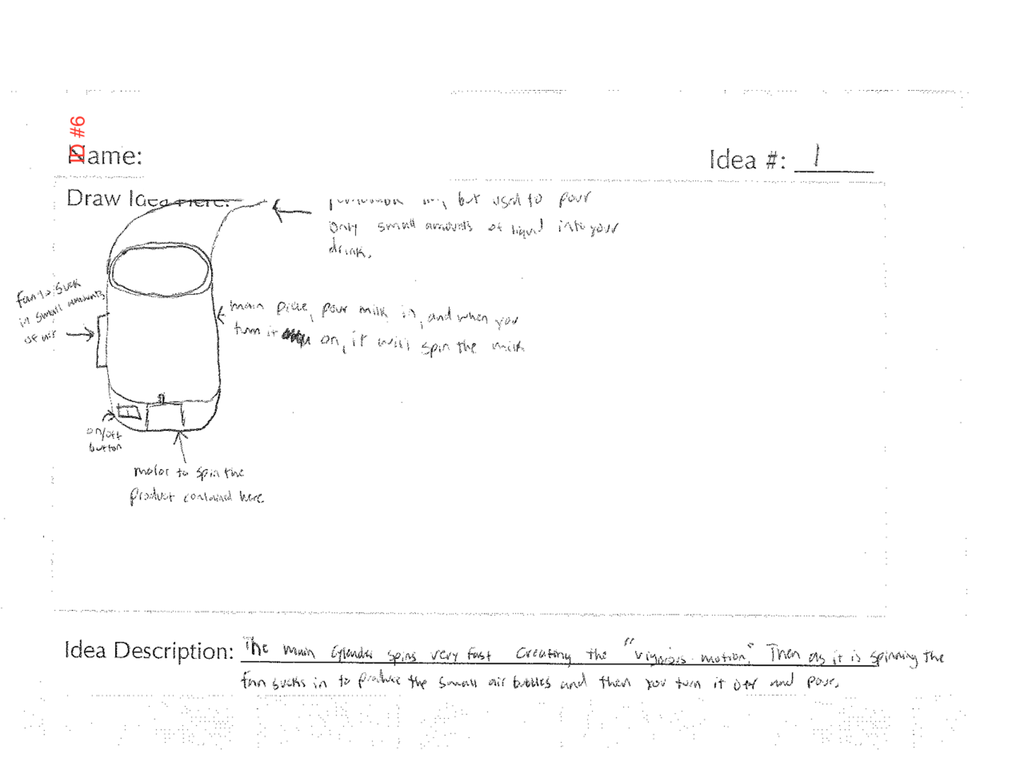 ID #6
Name:
Idea #: 1
Draw Idea Here:
but used to pour
only small amounts of liquid into your
drink.
fan to suck
in small amounts
of air
main piece, pour milk in, and when you
turn it on, it will spin the milk
on/off
button
motor to spin the
product contained here.
Idea Description: The main cylender spins very fast creating the "vigorois motion." Then as it is spinning the
fan sucks in to produce the small air bubbles and then you turn it off and pour.